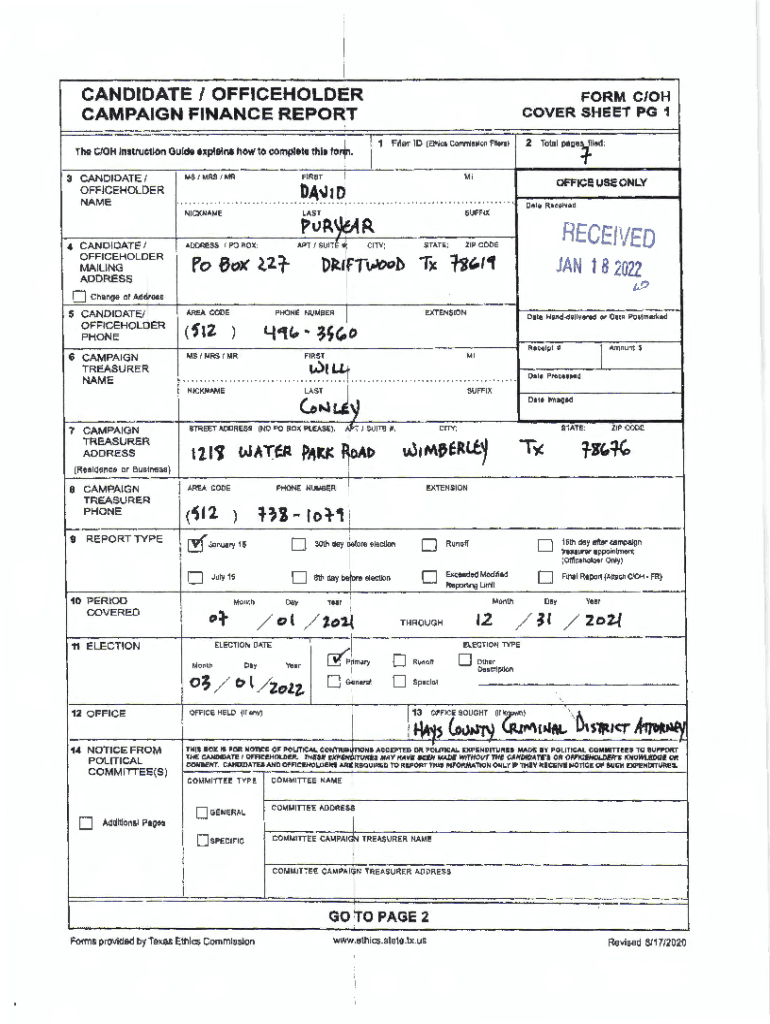 CANDIDATE / OFFICEHOLDER
CAMPAIGN FINANCE REPORT
FORM C/OH
COVER SHEET PG 1
The C/OH Instruction Guide explains how to complete this form.
1 Filer ID (Ethics Commission Filers)
2 Total pages filed:
7
3 CANDIDATE / OFFICEHOLDER NAME
MS / MRS / MR FIRST MI
DAVID
NICKNAME LAST SUFFIX
PURYEAR
OFFICE USE ONLY
Date Received
RECEIVED
JAN 18 2022
4 CANDIDATE / OFFICEHOLDER MAILING ADDRESS
Change of Address
ADDRESS / PO BOX; APT / SUITE #; CITY; STATE; ZIP CODE
PO BOX 227 DRIFTWOOD TX 78619
5 CANDIDATE/ OFFICEHOLDER PHONE
AREA CODE PHONE NUMBER EXTENSION
(512) 496-3560
Date Hand-delivered or Date Postmarked
Receipt # Amount $
Date Processed
Date Imaged
6 CAMPAIGN TREASURER NAME
MS / MRS / MR FIRST MI
WILL
NICKNAME LAST SUFFIX
CONLEY
7 CAMPAIGN TREASURER ADDRESS
(Residence or Business)
STREET ADDRESS (NO PO BOX PLEASE); APT / SUITE #; CITY; STATE; ZIP CODE
1218 WATER PARK ROAD WIMBERLEY TX 78676
8 CAMPAIGN TREASURER PHONE
AREA CODE PHONE NUMBER EXTENSION
(512) 738-1079
9 REPORT TYPE
January 15 30th day before election Runoff 15th day after campaign treasurer appointment (Officeholder Only)
July 15 8th day before election Exceeded Modified Reporting Limit Final Report (Attach C/OH - FR)
10 PERIOD COVERED
Month Day Year Month Day Year
07 / 01 / 2021 THROUGH 12 / 31 / 2021
11 ELECTION
ELECTION DATE ELECTION TYPE
Month Day Year
03 / 01 / 2022
Primary Runoff Other Description
General Special
12 OFFICE
OFFICE HELD (if any)
13 OFFICE SOUGHT (if known)
HAYS COUNTY CRIMINAL DISTRICT ATTORNEY
14 NOTICE FROM POLITICAL COMMITTEE(S)
Additional Pages
THIS BOX IS FOR NOTICE OF POLITICAL CONTRIBUTIONS ACCEPTED OR POLITICAL EXPENDITURES MADE BY POLITICAL COMMITTEES TO SUPPORT
THE CANDIDATE / OFFICEHOLDER. THESE EXPENDITURES MAY HAVE BEEN MADE WITHOUT THE CANDIDATE'S OR OFFICEHOLDER'S KNOWLEDGE OR
CONSENT. CANDIDATES AND OFFICEHOLDERS ARE REQUIRED TO REPORT THIS INFORMATION ONLY IF THEY RECEIVE NOTICE OF SUCH EXPENDITURES.
COMMITTEE TYPE COMMITTEE NAME
GENERAL
COMMITTEE ADDRESS
SPECIFIC
COMMITTEE CAMPAIGN TREASURER NAME
COMMITTEE CAMPAIGN TREASURER ADDRESS
GO TO PAGE 2
Forms provided by Texas Ethics Commission www.ethics.state.tx.us Revised 8/17/2020